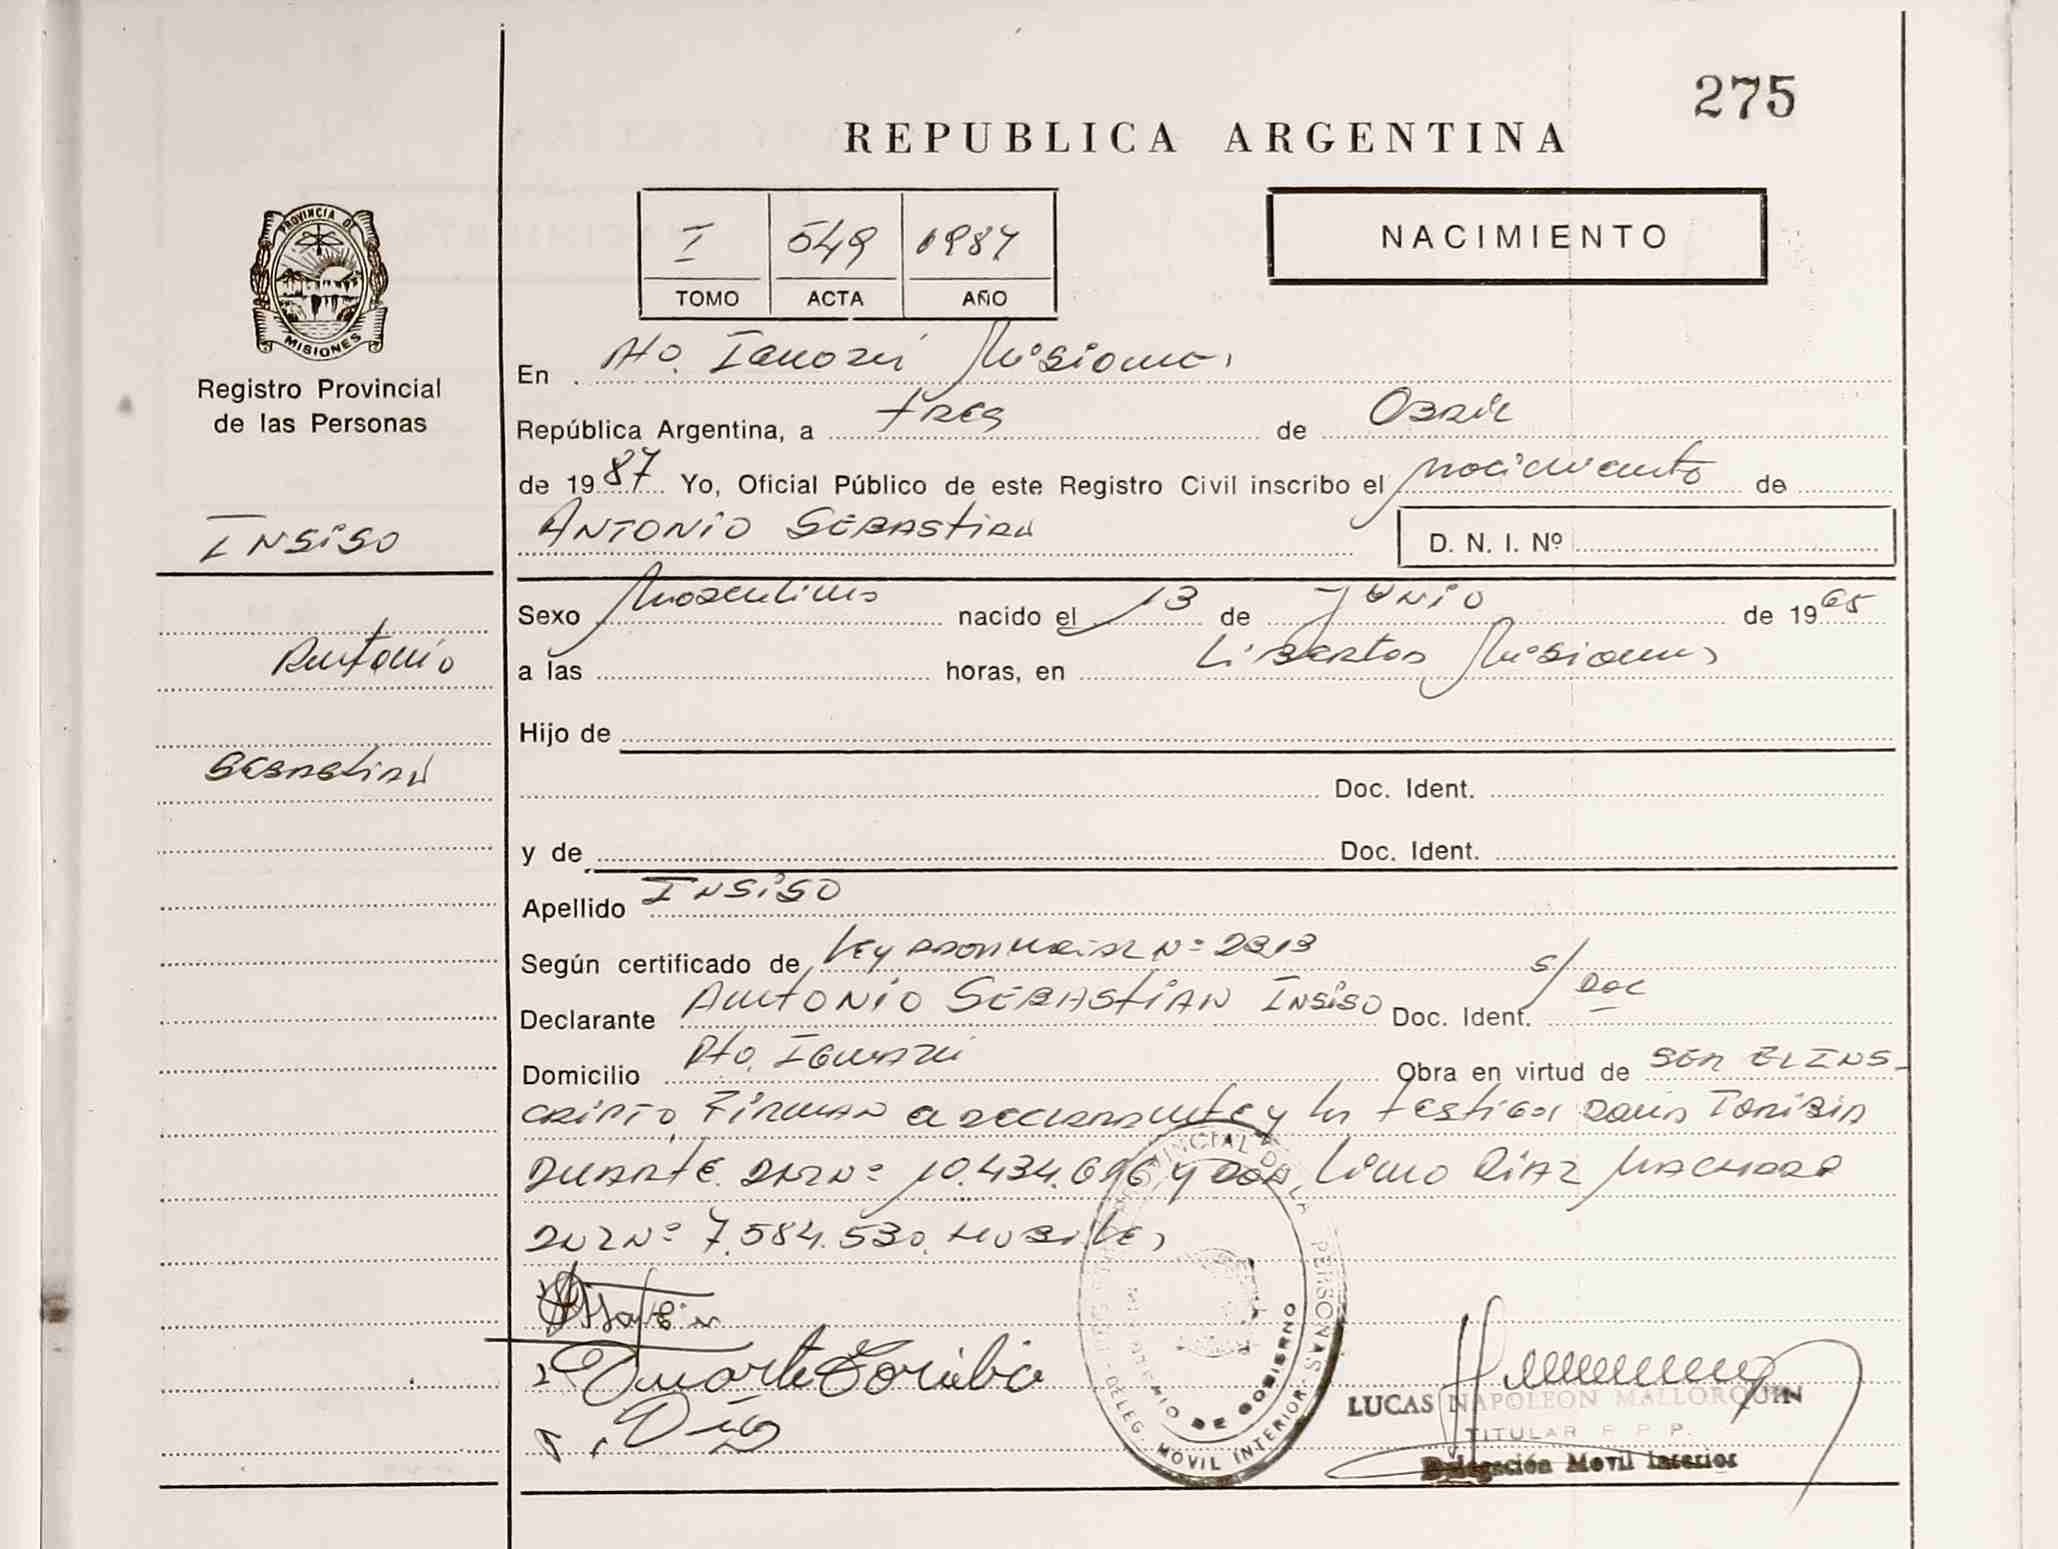 275
REPUBLICA ARGENTINA
I 549 1987
TOMO ACTA AÑO
NACIMIENTO
PROVINCIA DE
MISIONES
Registro Provincial
de las Personas
En Pto. Iguazú Misiones
República Argentina, a tres de Abril
de 1987 Yo, Oficial Público de este Registro Civil inscribo el nacimiento de
Insiso
Antonio Sebastian
D. N. I. Nº
Sexo Masculino nacido el 13 de Junio de 1965
Antonio
a las horas, en Libertad Misiones
Hijo de
Sebastian
Doc. Ident.
y de Doc. Ident.
Apellido Insiso
Según certificado de Ley Provincial Nº 2313
Declarante Antonio Sebastian Insiso Doc. Ident. s/Doc
Domicilio Pto. Iguazu Obra en virtud de ser el ins-
cripto. Firman el declarante y los testigos Doña Toribia
Duarte DNI Nº 10.434.696 y Don Lino Diaz Machado
DNI Nº 7.584.530.
Duarte Toribia
Diaz
PROVINCIAL DE LAS PERSONAS
MINISTERIO DE GOBIERNO
DELEG. MOVIL INTERIOR
LUCAS NAPOLEON MALLORQUIN
TITULAR R P P.
Delegación Movil Interior